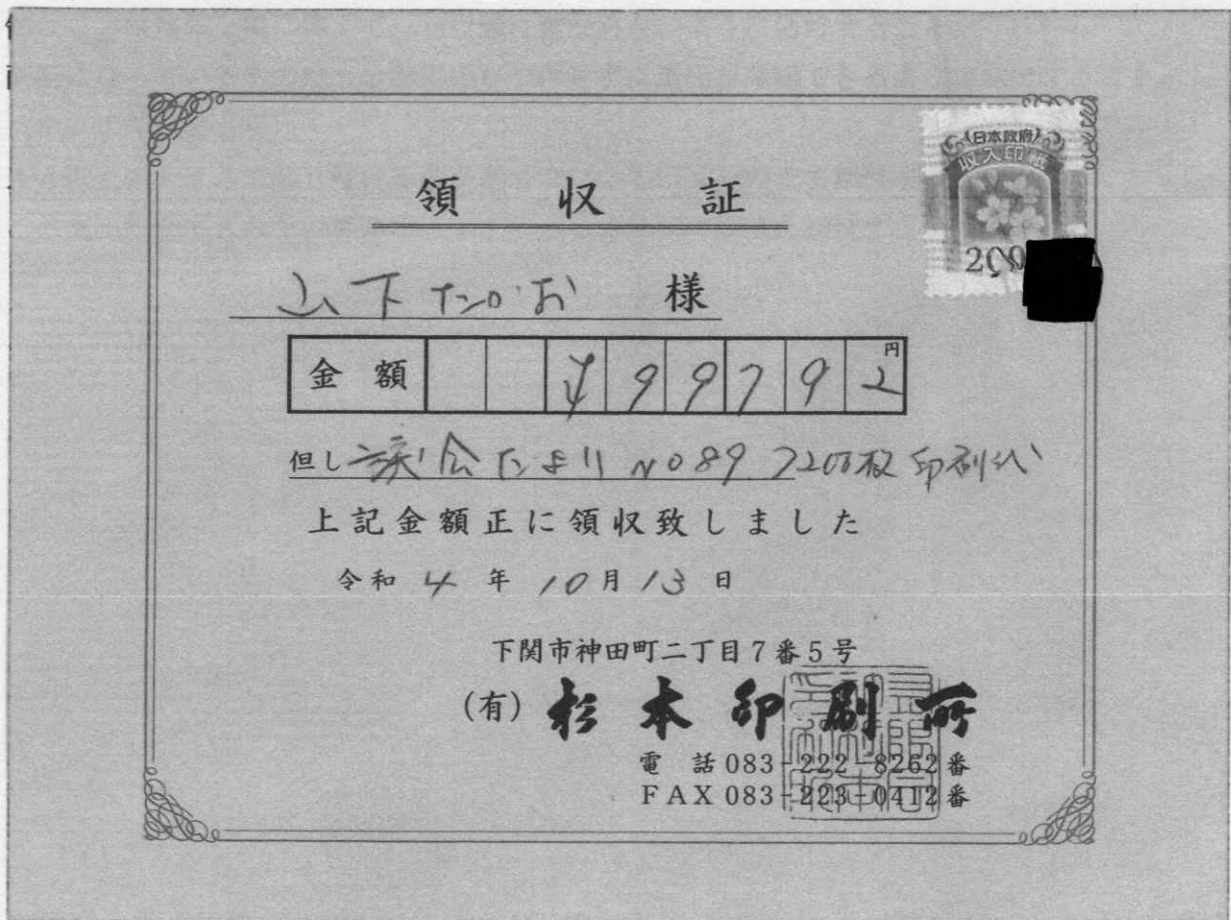 (日本政府)
収入印紙
200
領収証
山下たかお 様
金額 ¥99792円
但し 議会だより NO89 7200枚 印刷代
上記金額正に領収致しました
令和4年10月13日
下関市神田町二丁目7番5号
(有)松本印刷所
電話083-222-8262番
FAX083-223-0412番